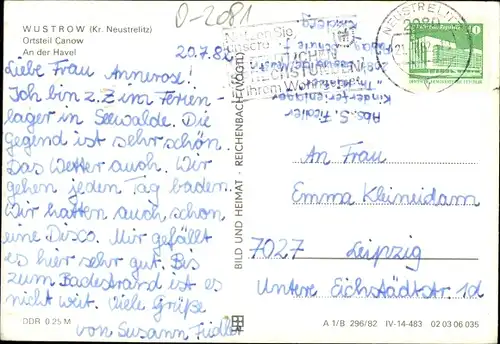 WUSTROW (Kr. Neustrelitz)
Ortsteil Canow
An der Havel
20.7.82
Liebe Frau Annerose!
Ich bin z. Z. im Ferien-
lager in Seewalde. Die
Gegend ist sehr schön.
Das Wetter auch. Wir
gehen jeden Tag baden.
Wir hatten auch schon
eine Disco. Mir gefällt
es hier sehr gut. Bis
zum Badestrand ist es
nicht weit. Viele Grüße
von Susann Fiedler
DDR 0.25 M
BILD UND HEIMAT · REICHENBACH (VOGTL)
O-2081
Nutzen Sie
unsere
SPRECHSTUNDEN
NEUSTRELITZ
2080
10
Abs. S. Fiedler
Kinderferienlager
An Frau
Emma Kleineidam
7027 Leipzig
Untere Eichstädtstr. 1d
A 1/B 296/82 IV-14-483 02 03 06 035